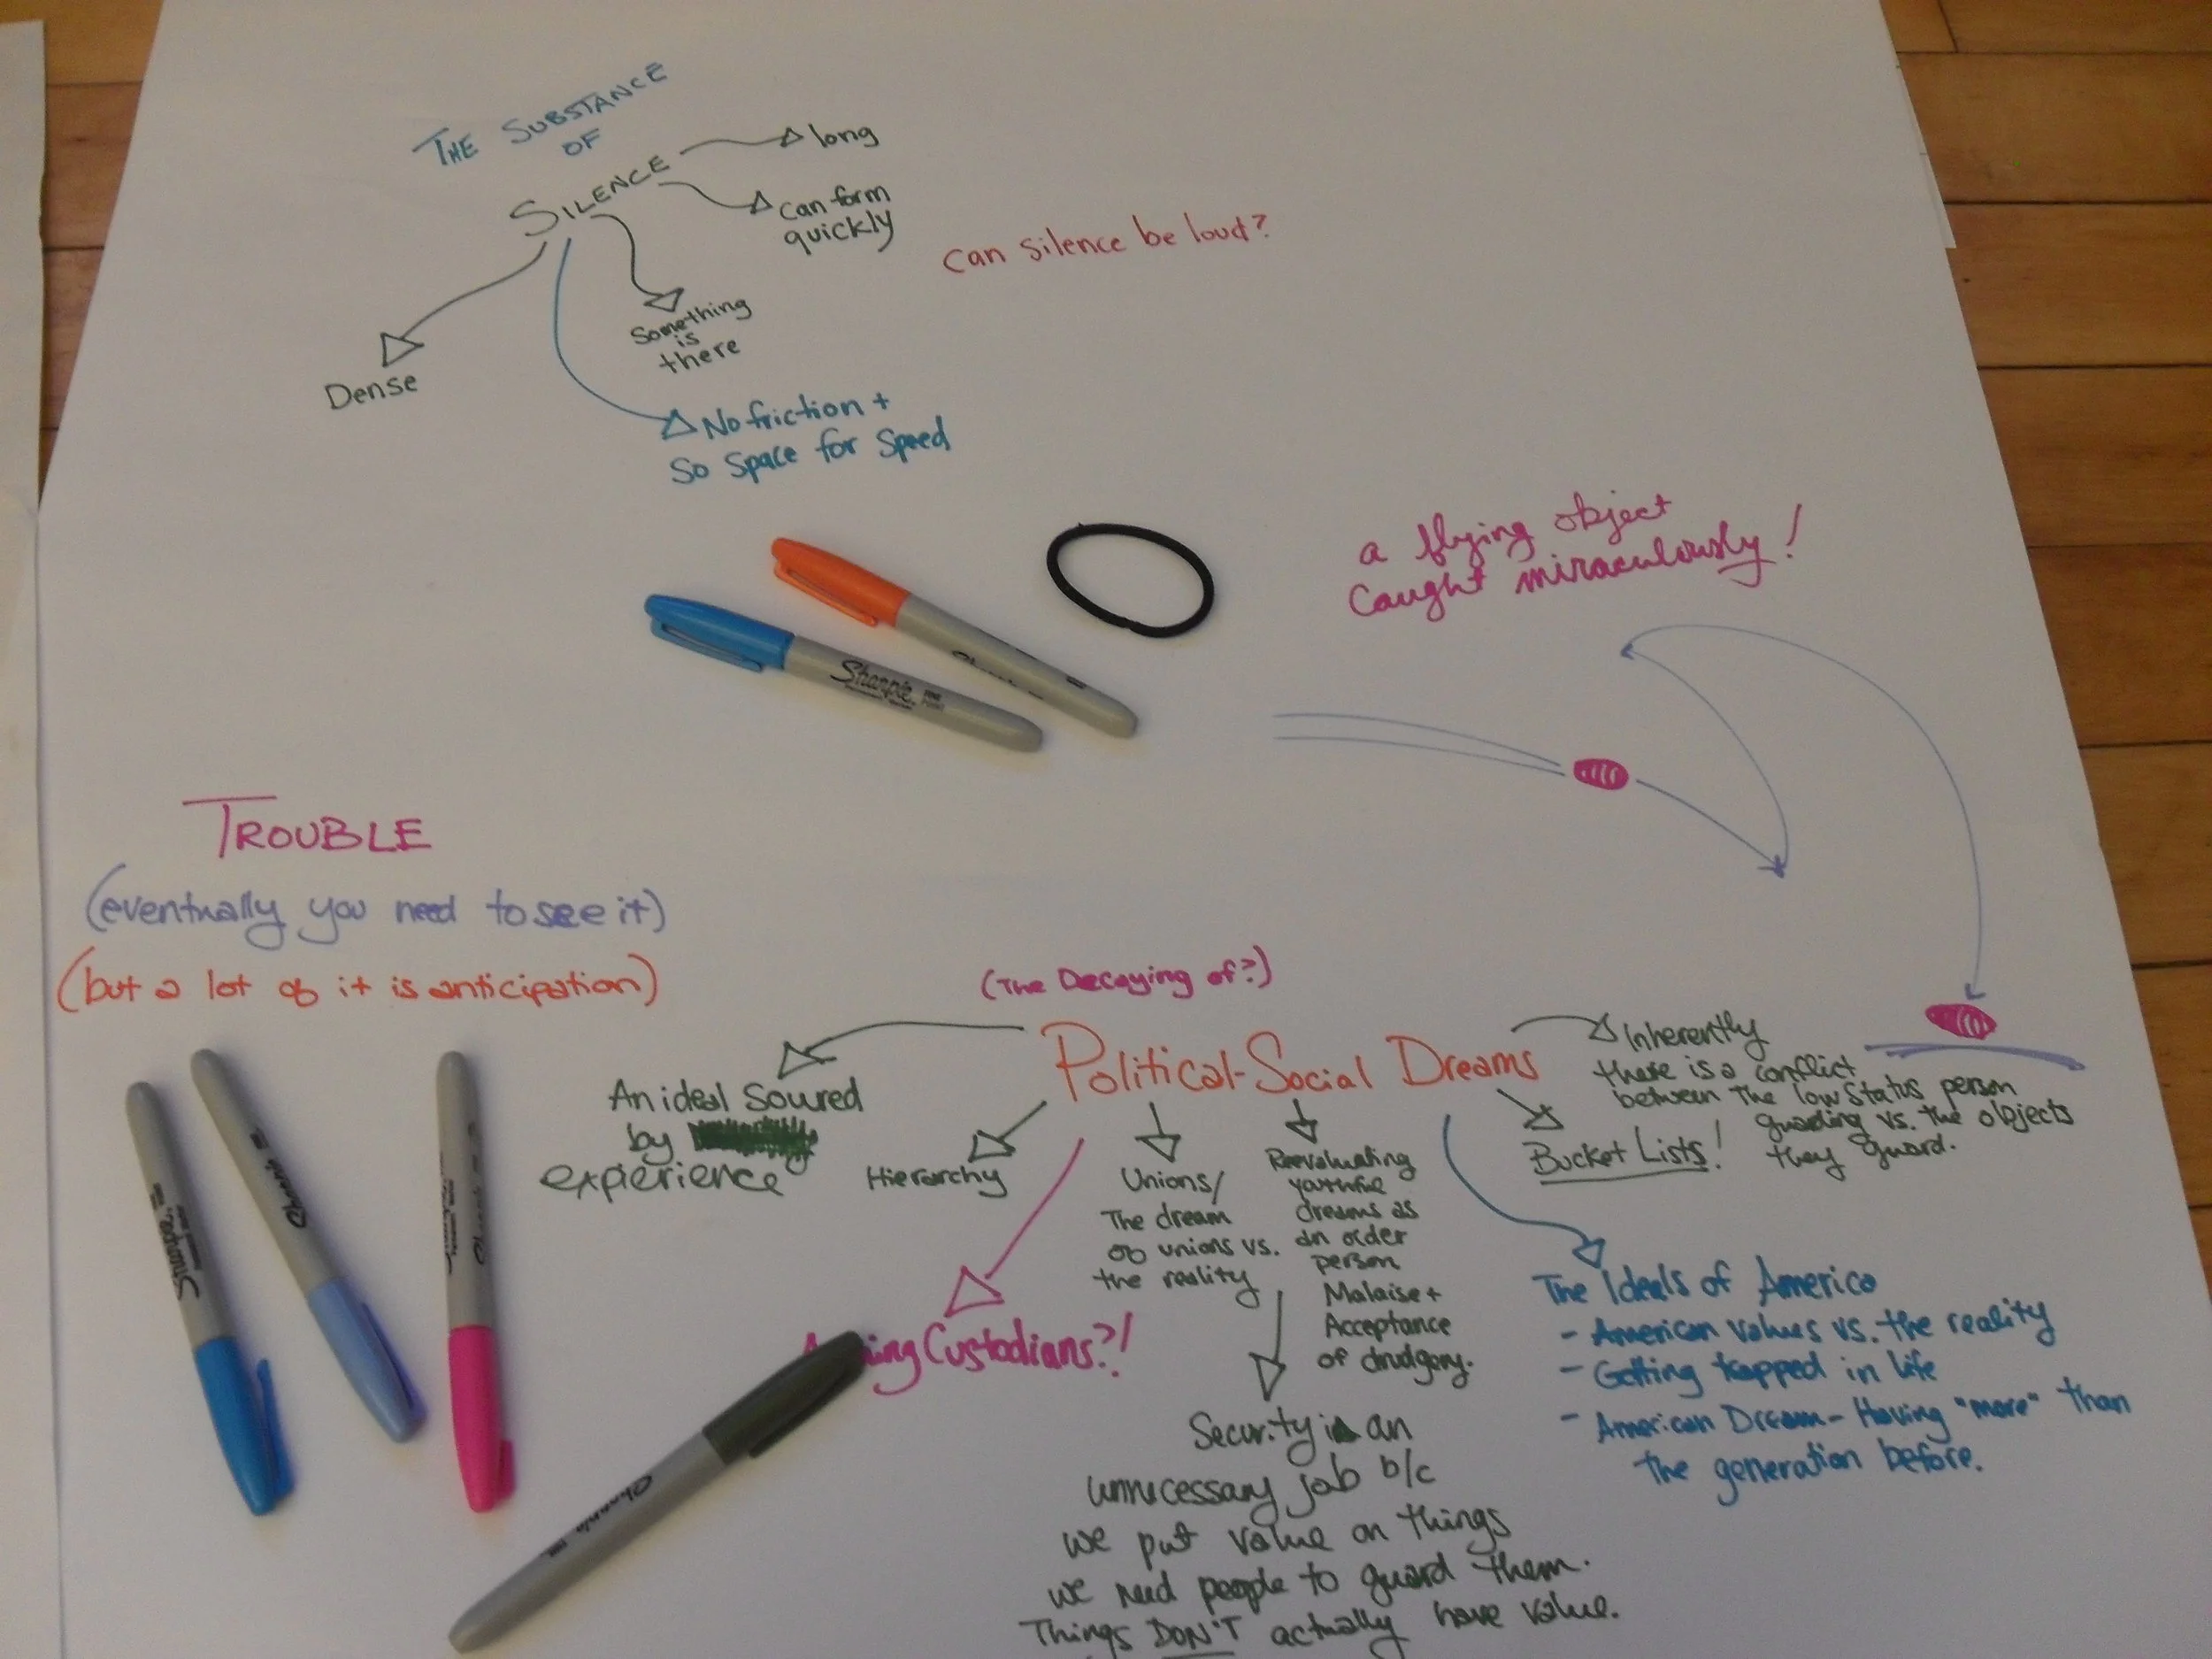 THE SUBSTANCE
OF
SILENCE
long
Can form
quickly
Something
is
there
Dense
No friction +
So Space for Speed
Can Silence be loud?
a flying object
Caught miraculously!
Sharpie
TROUBLE
(eventually you need to see it)
(but a lot of it is anticipation)
(The Decaying of?)
Political-Social Dreams
An ideal Soured
by
experience
Hierarchy
Custodians?!
Unions/
The dream
of unions vs.
the reality
Reevaluating
youthful
dreams as
an older
person
Malaise +
Acceptance
of drudgery.
Security is an
unnecessary job b/c
we put value on things
we need people to guard them.
Things DON'T actually have value.
Bucket Lists!
Inherently
there is a conflict
between the low status person
guarding vs. the objects
they guard.
The Ideals of America
- American values vs. the reality
- Getting trapped in life
- American Dream - Having "more" than
the generation before.
Sharpie
Sharpie
Sharpie
Sharpie